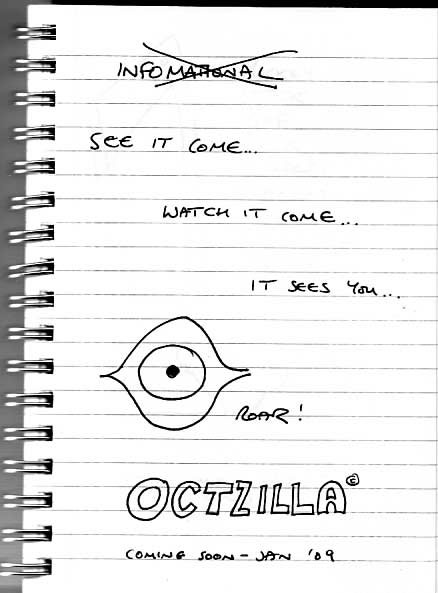 INFOMATIONAL
SEE IT COME...
WATCH IT COME...
IT SEES YOU...
ROAR!
OCTZILLA©
COMING SOON - JAN '09